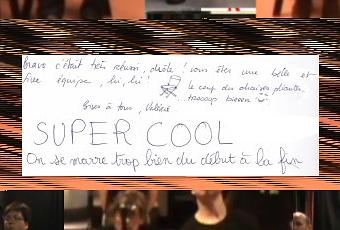 Bravo c'était très réussi, drôle ! vous êtes une belle et
fine équipe, hi, hi !
le coup des chaises pliantes,
troooop bieeen
Bises à tous, Valérie
SUPER COOL
On se marre trop bien du début à la fin